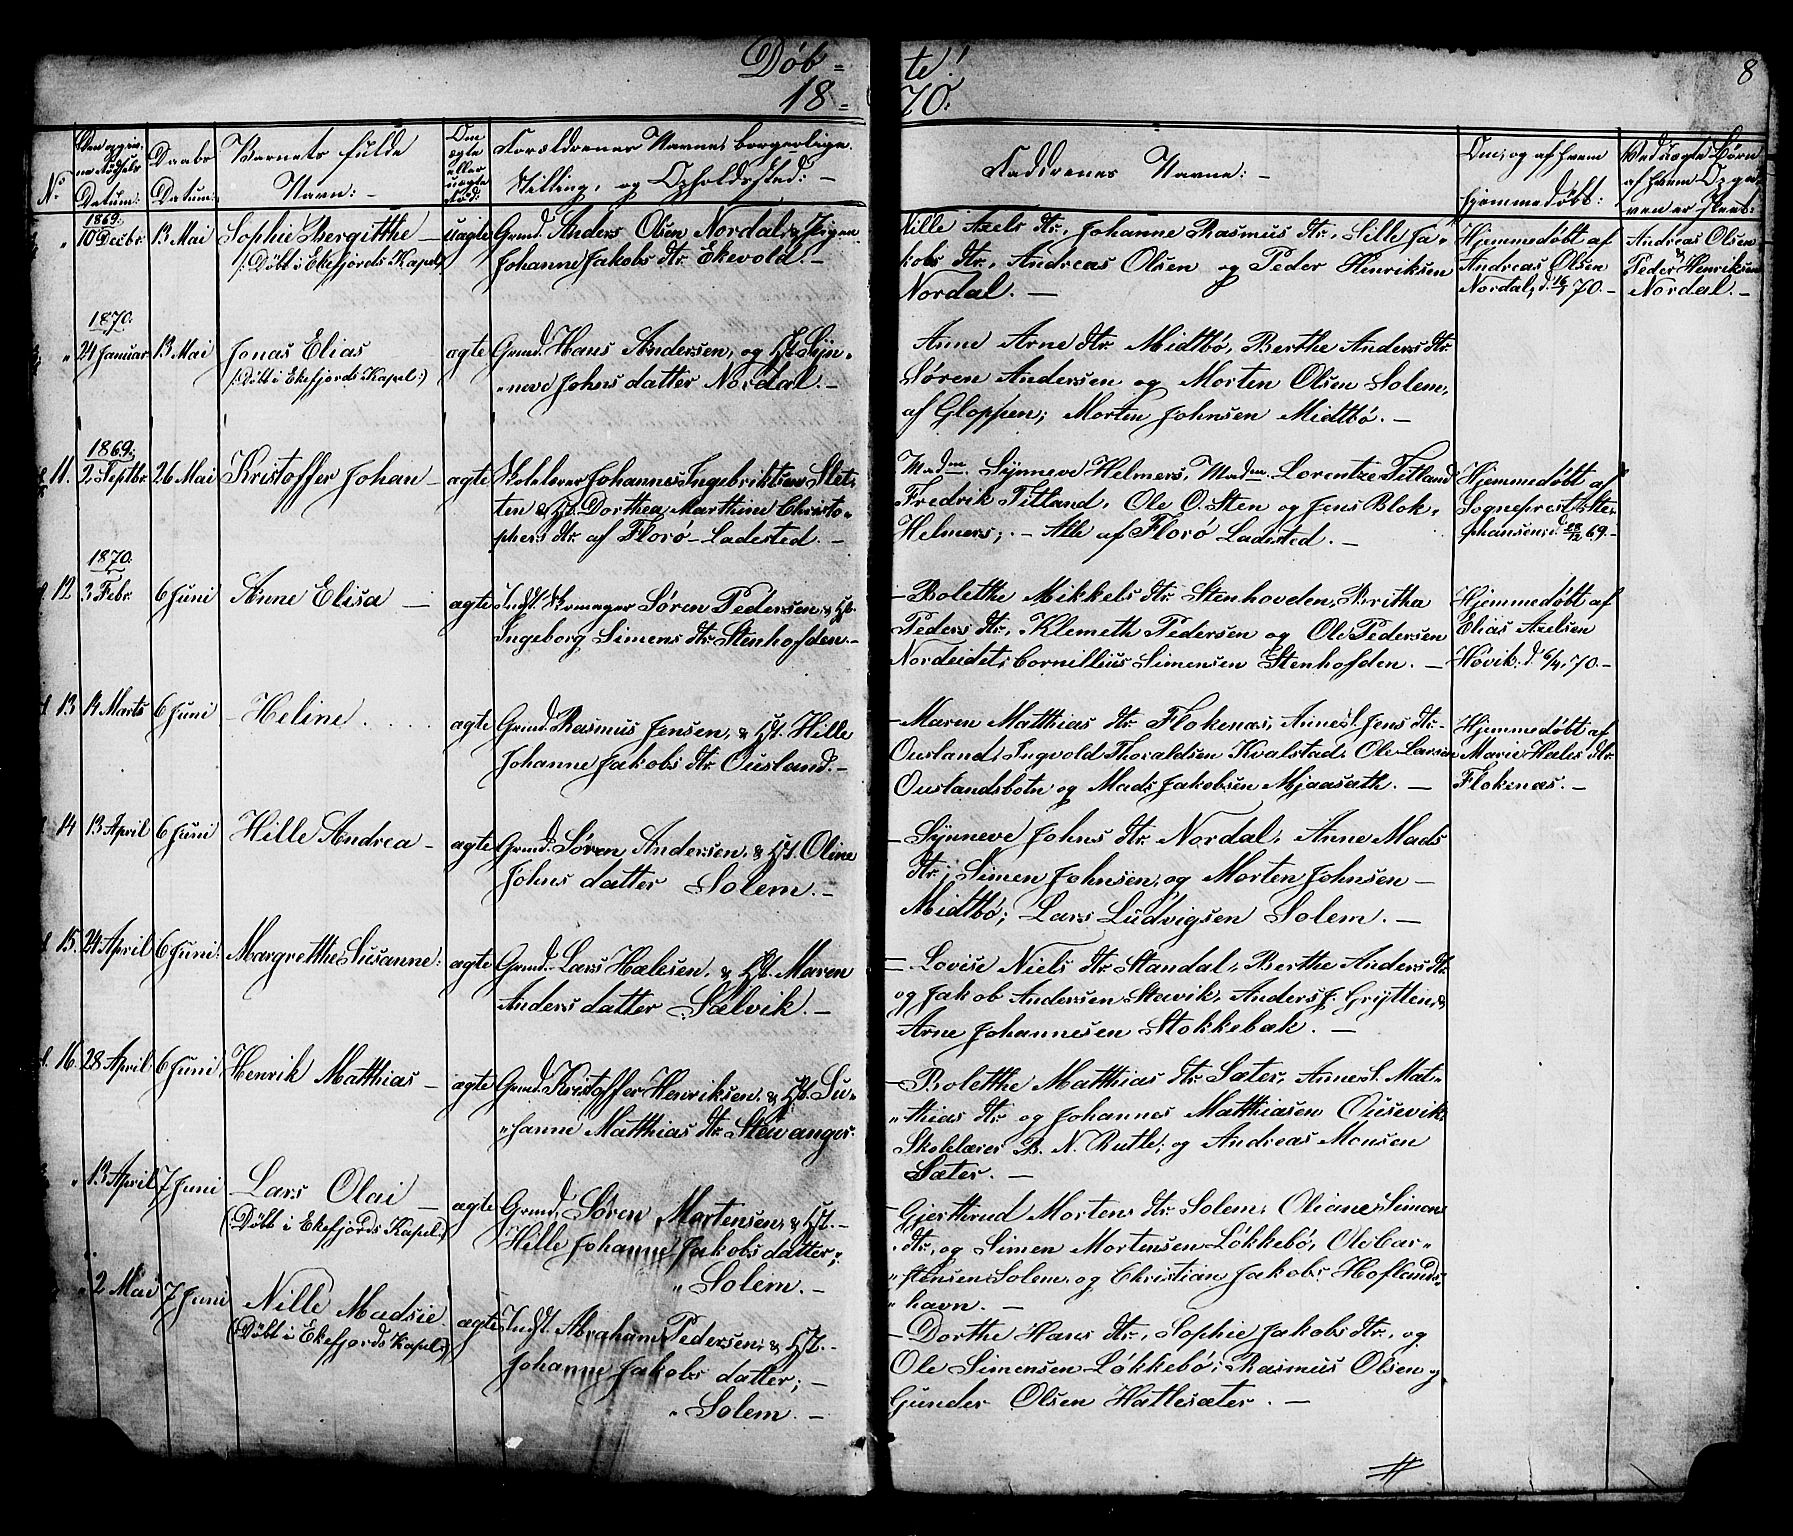 Döb=
te!
8
18=
70.
No
Den opgivne Födsels Datum:
Daabs Datum:
Barnets fulde Navn:
Om ægte eller uægte föd:
Forældrenes Navne, borgerlige Stilling, og Opholdssted:
Faddrenes Navne:
Om, og af hvem hjemmedöbt:
Ved uægte Börn
1869.
10 Decbr
13 Mai
Sophie Bergitthe
(:Döbt i Ekefjords Kapel:)
uagte
Grmd. Anders Olsen Nordal, & Pigen
Johanne Jakobs dtr. Ekevold. —
Nille Axels dtr., Johanne Rasmus dtr., Lille Ja-
kobs dtr., Andreas Olsen og Peder Henriksen
Nordal. —
Hjemmedöbt af
Andreas Olsen
Nordal, d. 16/1 70. —
Andreas Olsen
&
Peder Henriksen
Nordal. —
1870.
"
24 Januar
13 Mai
Jonas Elias
(:Döbt i Ekefjords Kapel:)
agte
Grmd. Hans Andersen, og Hst. Syn-
"neve Johns datter Nordal. —
Anne Arne dtr. Midtbö, Berthe Anders dtr.
Sören Andersen og Morten Olsen Solem,
af Gloppen; Morten Johnsen Midtbö. —
1869.
11.
2 Septbr.
26 Mai
Kristoffer Johan —
agte
Skolelærer Johannes Ingebriktsen Slet-
ten & Hst. Dorthea Marthine Christo-
phers dtr. af Florö Ladested. —
Madm. Synneve Helmers, Madm. Lorentze Tetland
Fredrik Tetland, Ole O. Sten og Jens Blok,
Helmers; — Alle af Florö Ladested. —
Hjemmedöbt af
Sogneprest Ste-
phansen, d. 28/12 69. —
1870.
12
3 Febr.
6 Juni
Anne Elisa —
agte
Indst. Skomager Sören Pedersen, & Hst.
Ingeborg Simens dtr. Stenhofden. —
— Bolethe Mikkels dtr. Stenhovden, Britha
Peders dtr., Klemeth Pedersen og Ole Pedersen
Nordeidet; Cornillius Simensen Stenhofden. —
Hjemmedöbt af
Elias Axelsen
Hovik. d. 6/4 70. —
13
14 Marts
6 Juni
— Heline
agte
Grmd. Rasmus Jensen, & Hst. Hille
Johanne Jakobs dtr. Ousland. —
— Maren Matthias dtr. Flokenæs, Anne S. Jens dtr.
Ousland; Ingvold Thoraldsen Kvalstad, Ole Larsen
Ouslandsbotn og Mads Jakobsen Mjaasath. —
Hjemmedöbt af
Marie Hæles dtr.
Flokenæs. —
14
13 April
6 Juni
Hille Andrea —
agte
Grmd. Sören Andersen, & Hst. Oline
Johns datter Solem. —
— Synneve Johns dtr. Nordal, Anne Mads
dtr; Simen Johnsen, og Morten Johnsen —
Midtbö; Lars Ludvigsen Solem. —
15.
24 April
6 Juni
Margrethe Susanne:
agte
Grmd. Lars Hælesen, & Hst. Maren
Anders datter Sælvik. —
— Lovise Niels dtr. Standal, Berthe Anders dtr.
og Jakob Andersen Stavik, Anders J. Grytten, &
Arne Johannesen Stokkebæk. —
16.
28 April
6 Juni
Henrik Matthias —
agte
Grmd. Kristoffer Henriksen, & Hst. Su-
"sanne Matthias dtr. Stavanger.
— Bolethe Matthias dtr. Sæter, Anne S. Mat-
"thias dtr. og Johannes Matthiasen Ousevik
Skolelærer B. N. Rutle; og Andreas Monsen
Sæter. —
"
13 April
7 Juni
Lars Olai —
(Döbt i Ekefjords Kapel:)
agte
Grmd. Sören Mortensen, & Hst. —
Hille Johanne Jakobs datter,
" Solem. —
— Gjerthrud Mortens dtr. Solem, Oliane Simons
dtr, og Simen Mortensen Lökkebö, Ole Car-
"stensen Solem, og Christian Jakobs. Hoflands-
"havn. —
"
2 Mai
7 Juni
Nille Madsie.
(:Döbt i Ekefjords Kapel:)
agte
Indst. Abraham Pedersen, & Hst. —
Johanne Jakobs datter; —
" Solem. —
— Dorthe Hans dtr., Sophie Jakobs dtr., og
Ole Simensen Lökkebö; Rasmus Olsen og
Gunder Olsen Hatlesæter. —